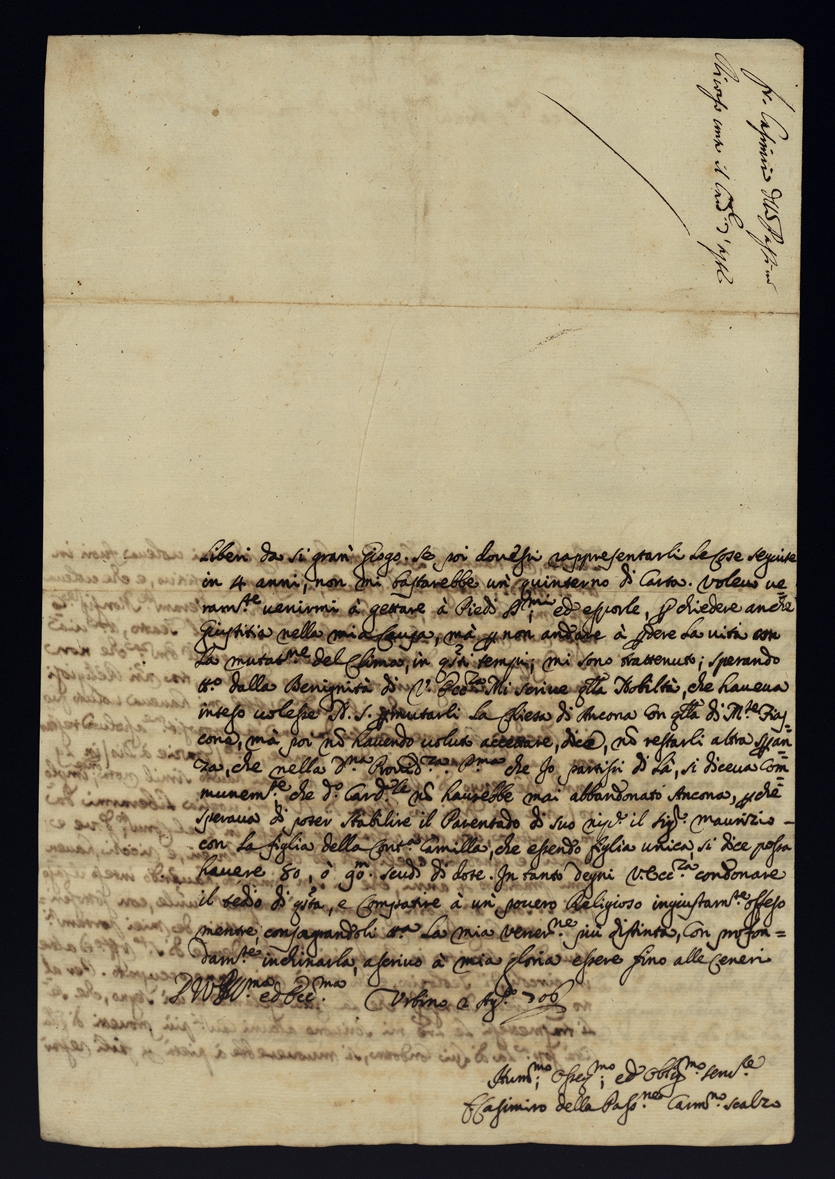 fr. Casimiro della Passi.ne
Ricorso contr il Card.l d'Aste
Liberi da si gran Giogo. Se poi dovessi rappresentarli le Cose seguite
in 4 anni, non mi bastarebbe un quinterno di Carta. Voleva ve
ram.te venirmi à gettare à Piedi S.mi ed esporle, p chiedere anche
Giustitia nella mia Causa, mà p non andare à pdere la vita
la mutat.ne del Clima, in q.ti tempi; mi sono trattenuto; sperando
tt.o dalla Benignità di V. Ecc.za Mi scrive q.lla Nobiltà, che haveva
inteso volesse N. S. pmutarli la Chiesa di Ancona con q.lla di M.te Fias-
cone, mà poi nõ havendo voluto accettare, dice, nõ restarli altra speran=
za, che nella D.na Proved.za. P.ma che Io partissi di Là, si diceva Com=
munem.te, che d.o Card.le nõ haurebbe mai abbandonato Ancona, pche
sperava di poter stabilire il Parentado di suo nip.e il sig.r Maurizio -
con la figlia della Cont.a Camilla, che essendo figlia unica, si dice possa
havere 80, ò 90m. scudi di dote. In tanto degni V. Ecc.za condonare
il tedio di q.sta, e Compatire à un povero Religioso ingiustam.te offeso
mentre, consagrandoli tt.a la mia vener.ne più distinta, con profon=
dam.te inchinarla, ascrivo à mia gloria essere fino alle Ceneri
D V. Ill.ma ed Ecc.ma Urbino 2 Ag.to 706
Hum.mo Osseq.mo ed Oblig.mo serv.re
F. Casimiro della Pass.ne Carm.no scalzo